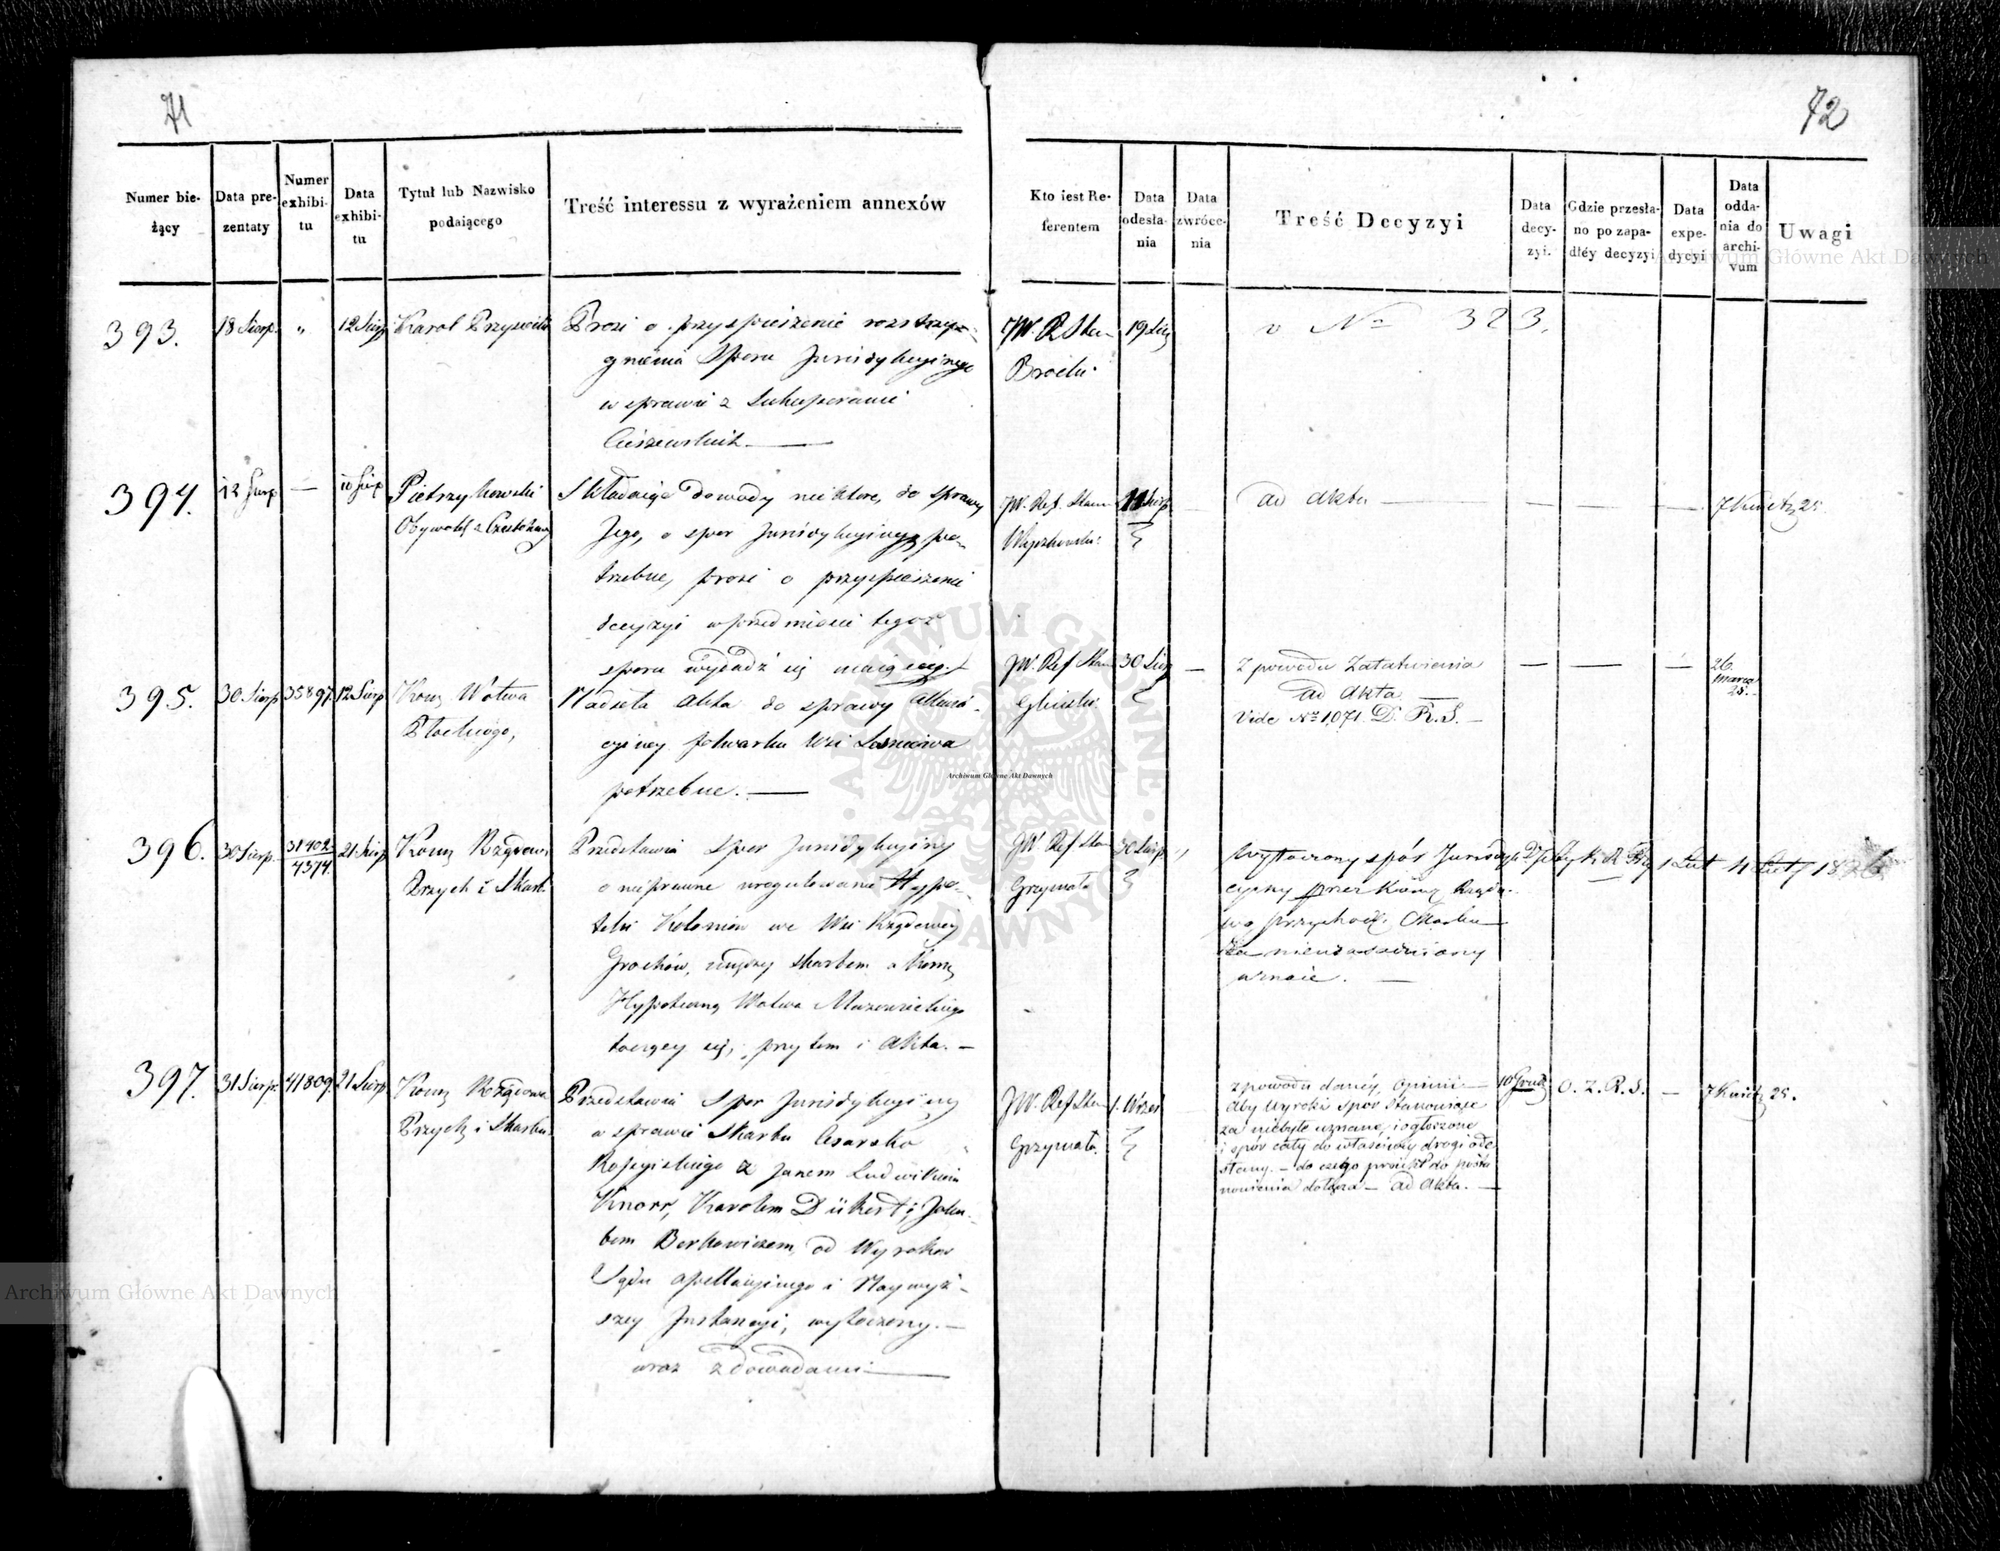 71
72
Numer bie-
żący
Data pre-
zentaty
Numer
exhibi-
tu
Data
exhibi-
tu
Tytuł lub Nazwisko
podaiącego
Treść interessu z wyrażeniem annexów
Kto iest Re-
ferentem
Data
odesła-
nia
Data
zwróce-
nia
Treść Decyzyi
Data
decy-
zyi.
Gdzie przesła-
no po zapa-
dłéy decyzyi
Data
expe-
dycyi
Data
odda-
nia do
archi-
vum
Uwagi
393.
18 Sierp.
"
12 Sierp
Karol
Prosi o przyspieszenie rozstrzy-
gnienia Sporu Jurisdykcyinego
w sprawie z
JW. R Stanu
19 Sier
v No 323.
394.
12 Sierp
—
10 Sierp
Pietrzykowski
Obywatel z
Składaiąc dowody niektóre, do sprawy
Jego, o spor Jurisdykcyiny po-
trzebne, prosi o przyspieszenie
decyzyi w przedmiocie tegoż
sporu wydadź się maiącej.
JW. Ref. Stanu
Sierp
ad Akta —
7 Kwiet 25.
395.
30 Sierp
35897.
12 Sierp
Kom Wotwa
Płockiego,
Nadseła Akta do sprawy
folwarku Wsi
potrzebne. —
JW. Ref Stanu
Gliński
30 Sierp
Z powodu Załatwienia
ad Akta —
Vide No 1,071. D. R. S. —
26.
marca
25. —
396.
30 Sierp.
31402
4374.
21 Sierp
Kom Rządowa
Przych i Skarb.
Przedstawia Spor Jurisdykcyiny
o nieprawne uregulowanie Hypo-
teki Koloniów we Wsi Rządowey
Grochów, między Skarbem a Kom
Hypoteczną Wotwa Mazowieckiego
toczący się, przytem i Akta. —
JW Ref Stanu
Grzymała
30 Sierp
Wytoczony spór Jurisdyk
cyiny przez Kom Rządo-
wą Przychod: i Skarbu
za nieuzasadniony
uznaie. —
1 Lut
397.
31 Sierp.
41809.
21 Sierp
Kom Rządowa
Przych i Skarbu
Przedstawia Spor Jurisdykcyiny
w sprawie Skarbu Cesarsko
Rossyiskiego z Janem Ludwikiem
Knorr, Karolem Dückert i Jaku-
bem Berkowiczem, od Wyroków
Sądu Apellacyinego i Naywyż-
szey Instancyi, wytoczony. —
wraz z dowodami —
JW. Ref Stanu
Grzymała.
1. Wrześ
z powodu danéy Opinii —
aby wyroki spór stanowiące
za niebyłe uznane, i ogłoszone
i spór cały do właściwey drogi ode-
słany. — do czego proiekt do posta
nowienia dołącza — ad Akta. —
10 Grud
O. Z. R. S.
—
7 Kwiet 25.
Archiwum Główne Akt Dawnych
Archiwum Główne Akt Dawnych
Archiwum Główne Akt Dawnych
ARCHIWUM GŁÓWNE AKT DAWNYCH